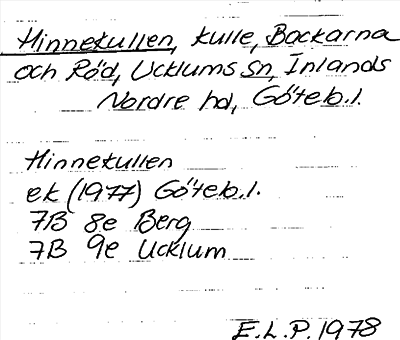 Hinnekullen, kulle, Backarna
och Röd, Ucklums sn, Inlands
Nordre hd, Göteb.l.
Hinnekullen
ek (1977) Göteb.l.
7B 8e Berg
7B 9e Ucklum
E.L.P. 1978